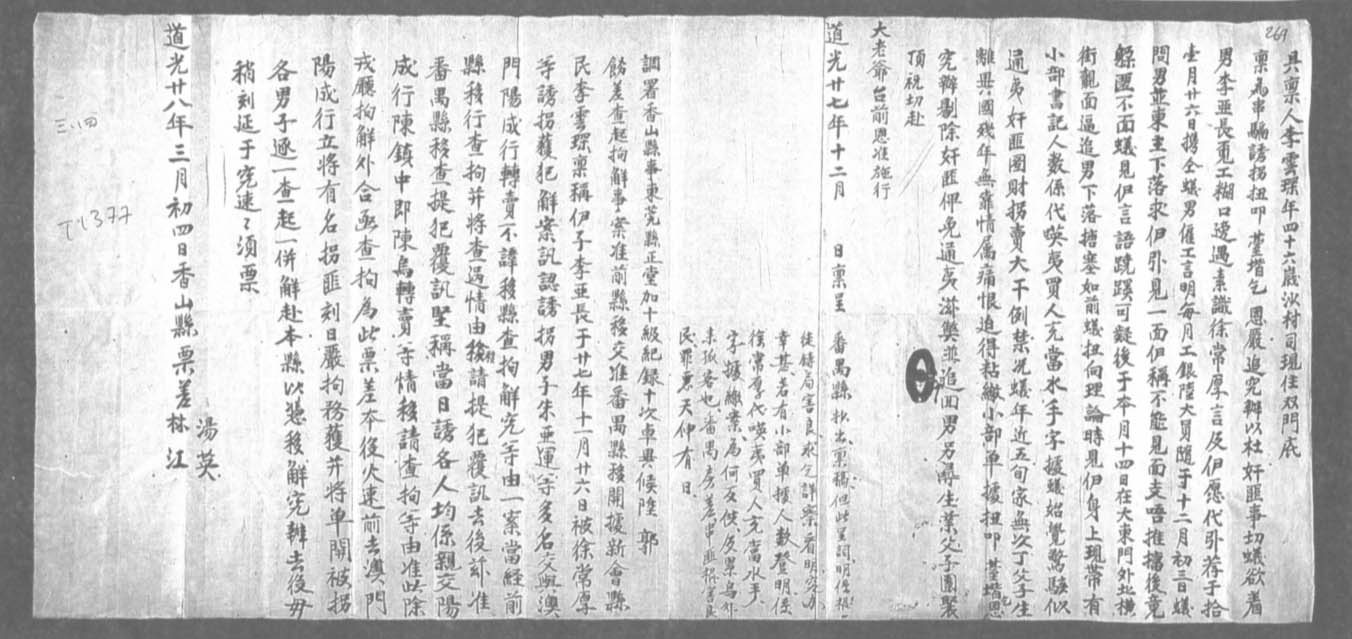 264
具稟人李雲琛年四十六歲沙村司現住双門底
稟為串騙誘拐扭叩 臺堦乞 恩嚴追究辦以杜奸匪事切蟻欲着
男李亜長覔工糊口遇素識徐常厚言及伊愿代引荐于拾
壹月廿六日携仝蟻男僱工言明每月工銀陸大員隨于十二月初三日蟻
問男並東主下落求伊引見一面伊稱不能見面支唔推擋後竟
躲匿不面蟻見伊言語蹺蹊可疑後于本月十四日在大東門外北橫
街觀面逼追男下落搪塞如前蟻扭向理論時見伊身上現帶有
小部書記人數係代𠸄夷買人充當水手字據蟻始覺驚駭似
通夷奸匪圖財拐賣大干例禁況蟻年近五旬家無次丁父子生
離異國殘年無靠情属痛恨迫得粘繳小部单據扭叩 臺堦恩
究辦剔除奸匪俾免通夷滋獘並追回男另尋生業父子團聚
頂祝切赴
大老爺台前恩准施行
道光廿七年十二月 日稟呈
番禺縣抄出稟稿但此呈詞明係
徒 局害良求乞詳察看明究办
幸甚若有小部单據人数登明係
徐常厚代𠸄夷買人充當水手
字據繳案為何反供
客也番禺房差串匪 害良
民罪衆天伸有日
調署香山縣事東莞縣正堂加十級紀録十次卓異候陞 郭
飭差查起拘解事案准前縣移交准番禺縣移開據新會縣
民李雲琛稟稱伊子李亜長于廿七年十一月廿六日被徐常厚
等誘拐獲犯解案訊認誘拐男子朱亜運等多名交與澳
門陽成行轉賣不諱移縣查拘解究等由一案當經前
縣移行查拘并將查過情由移請提犯覆訊去後茲准
番禺縣移查提犯覆訊堅稱當日誘各人均係親交陽
成行陳鎮中即陳烏轉賣等情移請查拘等由准此除
戎廳拘解外合亟查拘為此票差本後火速前去澳門
陽成行立將有名拐匪刻日嚴拘務獲并將单開被拐
各男子逐一查起一併解赴本縣以憑移解究辦去後毋
稍刻延于究速々須票
道光廿八年三月初四日香山縣票差 湯英 林江
三.八四
T4377